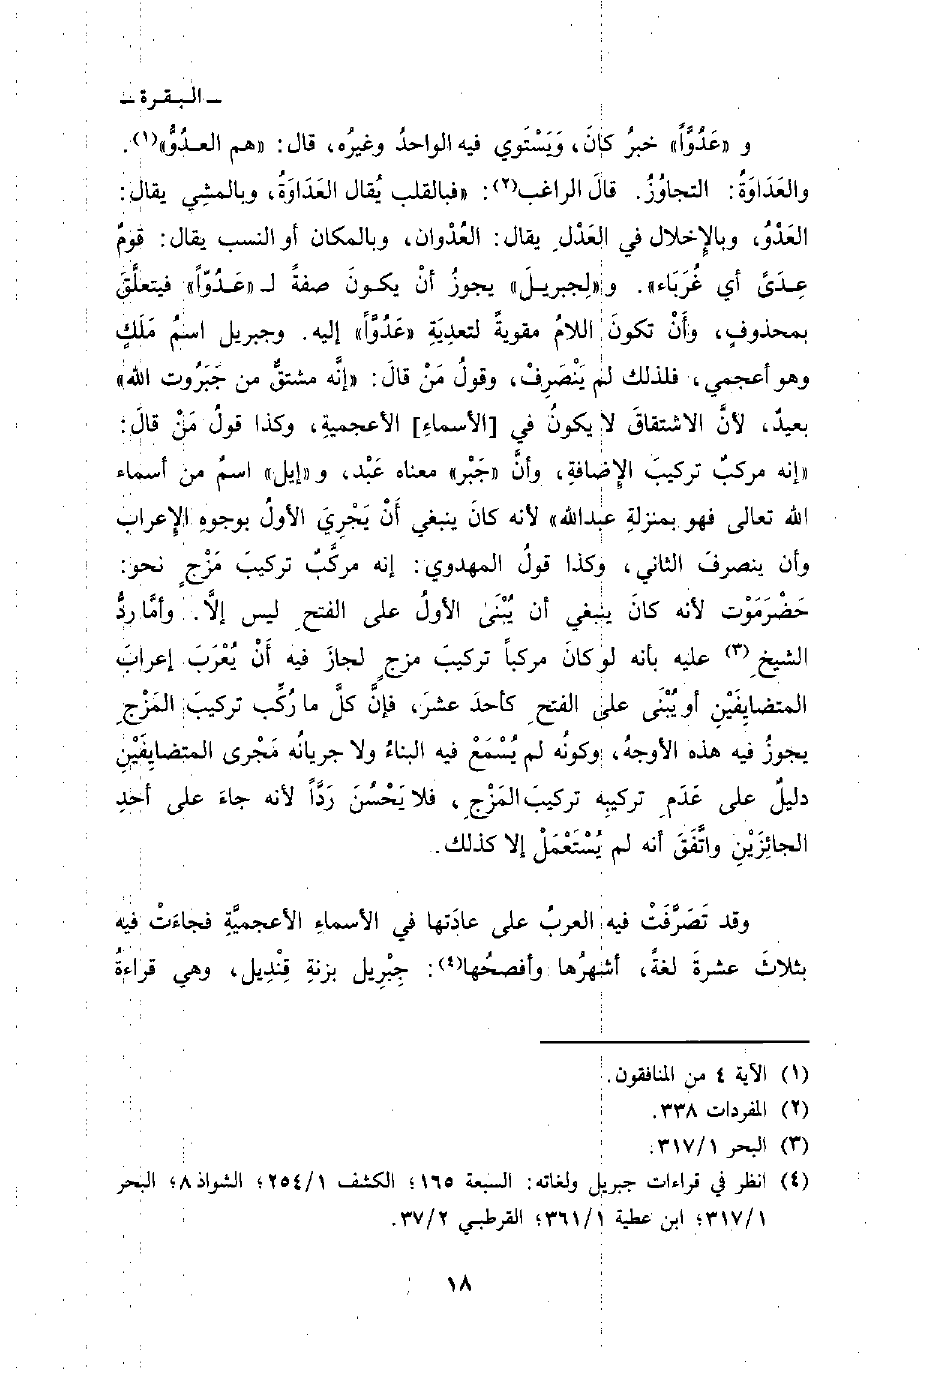 ـ البقرة ـ
و «عَدُوَّاً» خبرُ كانَ، وَيَسْتَوي فيه الواحدُ وغيرُه، قال: «هم العدُوُّ»(١).
والعَدَاوَةُ: التجاوُزُ. قالَ الراغب(٢): «فبالقلب يُقال العَدَاوَةُ، وبالمشْيِ يقال:
العَدْوُ، وبالإِخلال في العَدْلِ يقال: العُدْوان، وبالمكان أو النسب يقال: قومٌ
عِدَىً أي غُرَبَاء». و«لِجبريلَ» يجوزُ أنْ يكونَ صفةً لـ «عَدُوّاً» فيتعلَّقَ
بمحذوفٍ، وأَنْ تكونَ اللامُ مقويةً لتعدِيَةِ «عَدُوَّاً» إليه. وجبريل اسمُ مَلَكٍ
وهو أعجمي، فلذلك لم يَنْصَرِفْ، وقولُ مَنْ قالَ: «إنَّه مشتقٌّ من جَبَرُوت الله»
بعيدٌ، لأنَّ الاشتقاقَ لا يكونُ في [الأسماءِ] الأعجميةِ، وكذا قولُ مَنْ قالَ:
«إنه مركبٌ تركيبَ الإِضافةِ، وأنَّ «جَبْر» معناه عَبْد، و «إيل» اسمٌ من أسماء
الله تعالى فهو بمنزلةِ عبدالله» لأنه كانَ ينبغي أَنْ يَجْرِيَ الأولُ بوجوهِ الإِعرابِ
وأن ينصرفَ الثاني، وكذا قولُ المهدوي: إنه مركَّبٌ تركيبَ مَزْجٍ نحو:
حَضْرَمَوْت لأنه كانَ ينبغي أن يُبْنَىٰ الأولُ على الفتحِ ليس إلَّا. وأمَّا ردُّ
الشيخِ(٣) عليه بأنه لو كانَ مركباً تركيبَ مزجٍ لجازَ فيه أَنْ يُعْرَبَ إعرابَ
المتضايِفَيْنِ أو يُبْنَى على الفتحِ كأحدَ عشرَ، فإنَّ كلَّ ما رُكِّب تركيبَ المَزْجِ
يجوزُ فيه هذه الأوجهُ، وكونُه لم يُسْمَعْ فيه البناءُ ولا جريانُه مَجْرى المتضايِفَيْنِ
دليلٌ على عَدَمِ تركيبِه تركيبَ المَزْجِ، فلا يَحْسُنُ رَدَّاً لأنه جاءَ على أحدِ
الجائِزَيْنِ واتَّفَقَ أنه لم يُسْتَعْمَلْ إلا كذلك.
وقد تَصَرَّفَتْ فيه العربُ على عادَتِها في الأسماءِ الأعجميَّةِ فجاءَتْ فيه
بثلاثَ عشرةَ لغةً، أشهرُها وأفصحُها(٤): جِبْرِيل بزنةِ قِنْديل، وهي قراءةُ
(١) الآية ٤ من المنافقون.
(٢) المفردات ٣٣٨.
(٣) البحر ٣١٧/١.
(٤) انظر في قراءات جبريل ولغاته: السبعة ١٦٥؛ الكشف ٢٥٤/١؛ الشواذ ٨؛ البحر
٣١٧/١؛ ابن عطية ٣٦١/١؛ القرطبي ٣٧/٢.
١٨